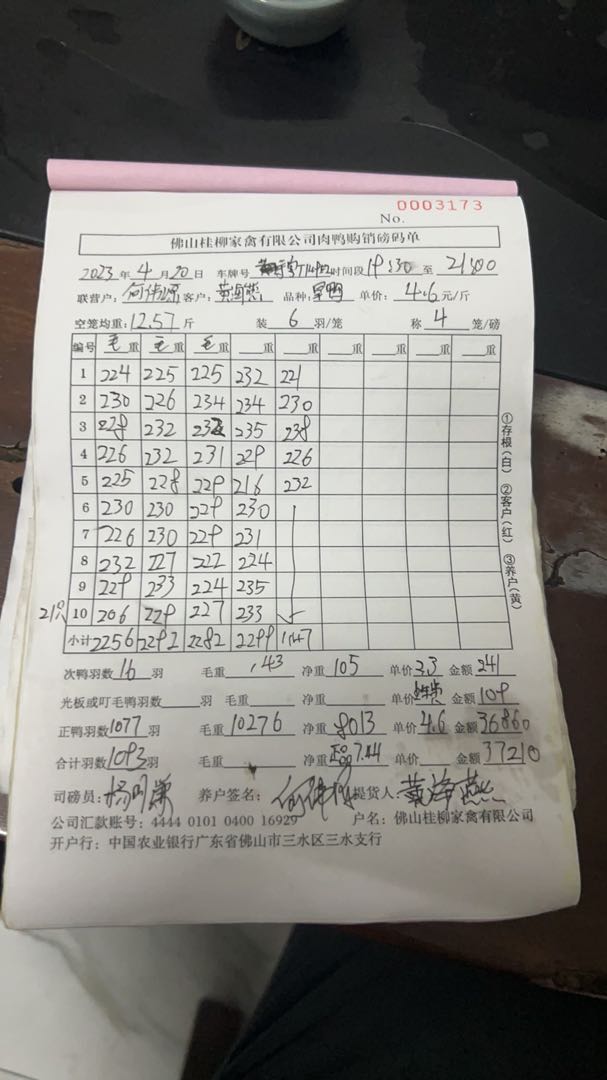 No. 0003173
佛山桂柳家禽有限公司肉鸭购销磅码单
2023年4月20日 车牌号 时间段19:30至21:00
联营户:何伟源 客户:黄海燕 品种:旱鸭 单价:4.6元/斤
空笼均重:12.57斤 装6羽/笼 称4笼/磅
编号 毛重 毛重 毛重 重 重 重 重 重
1 224 225 225 232 221
2 230 226 234 234 230
3 228 232 232 235 238
4 226 232 231 229 226
5 225 228 229 216 232
6 230 230 229 230
7 226 230 229 231
8 232 227 222 224
9 229 233 224 235
21只 10 206 229 227 233
小计 2256 2292 2282 2299 1147
次鸭羽数16羽 毛重143 净重105 单价2.3 金额241
光板或叮毛鸭羽数 羽 毛重 净重 单价 金额109
正鸭羽数1077羽 毛重10276 净重8013 单价4.6 金额36860
合计羽数1093羽 毛重 净重 单价 金额37210
司磅员: 养户签名:何伟源 提货人:黄海燕
公司汇款账号:4444 0101 0400 16929 户名:佛山桂柳家禽有限公司
开户行:中国农业银行广东省佛山市三水区三水支行
①存根(白) ②客户(红) ③养户(黄)